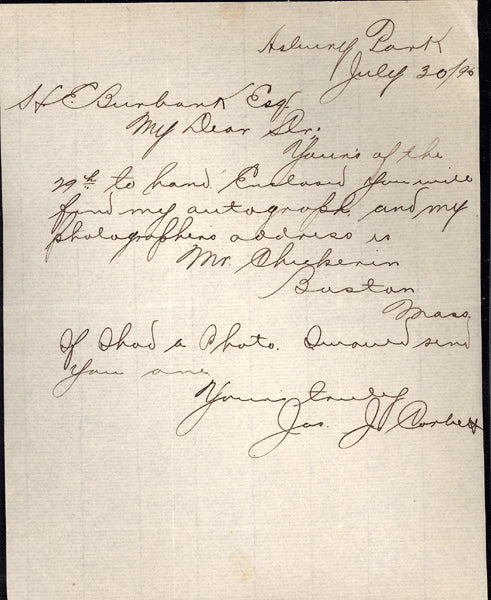 Asbury Park
July 30/95
H. E. Burbank Esq.
My Dear Sir;
Yours of the
29th to hand. Enclosed you will
find my autograph, and my
photographers address is
Mr. Chickerin
Boston
Mass.
If I had a Photo. I would send
you one
Yours truly
Jas. J. Corbett